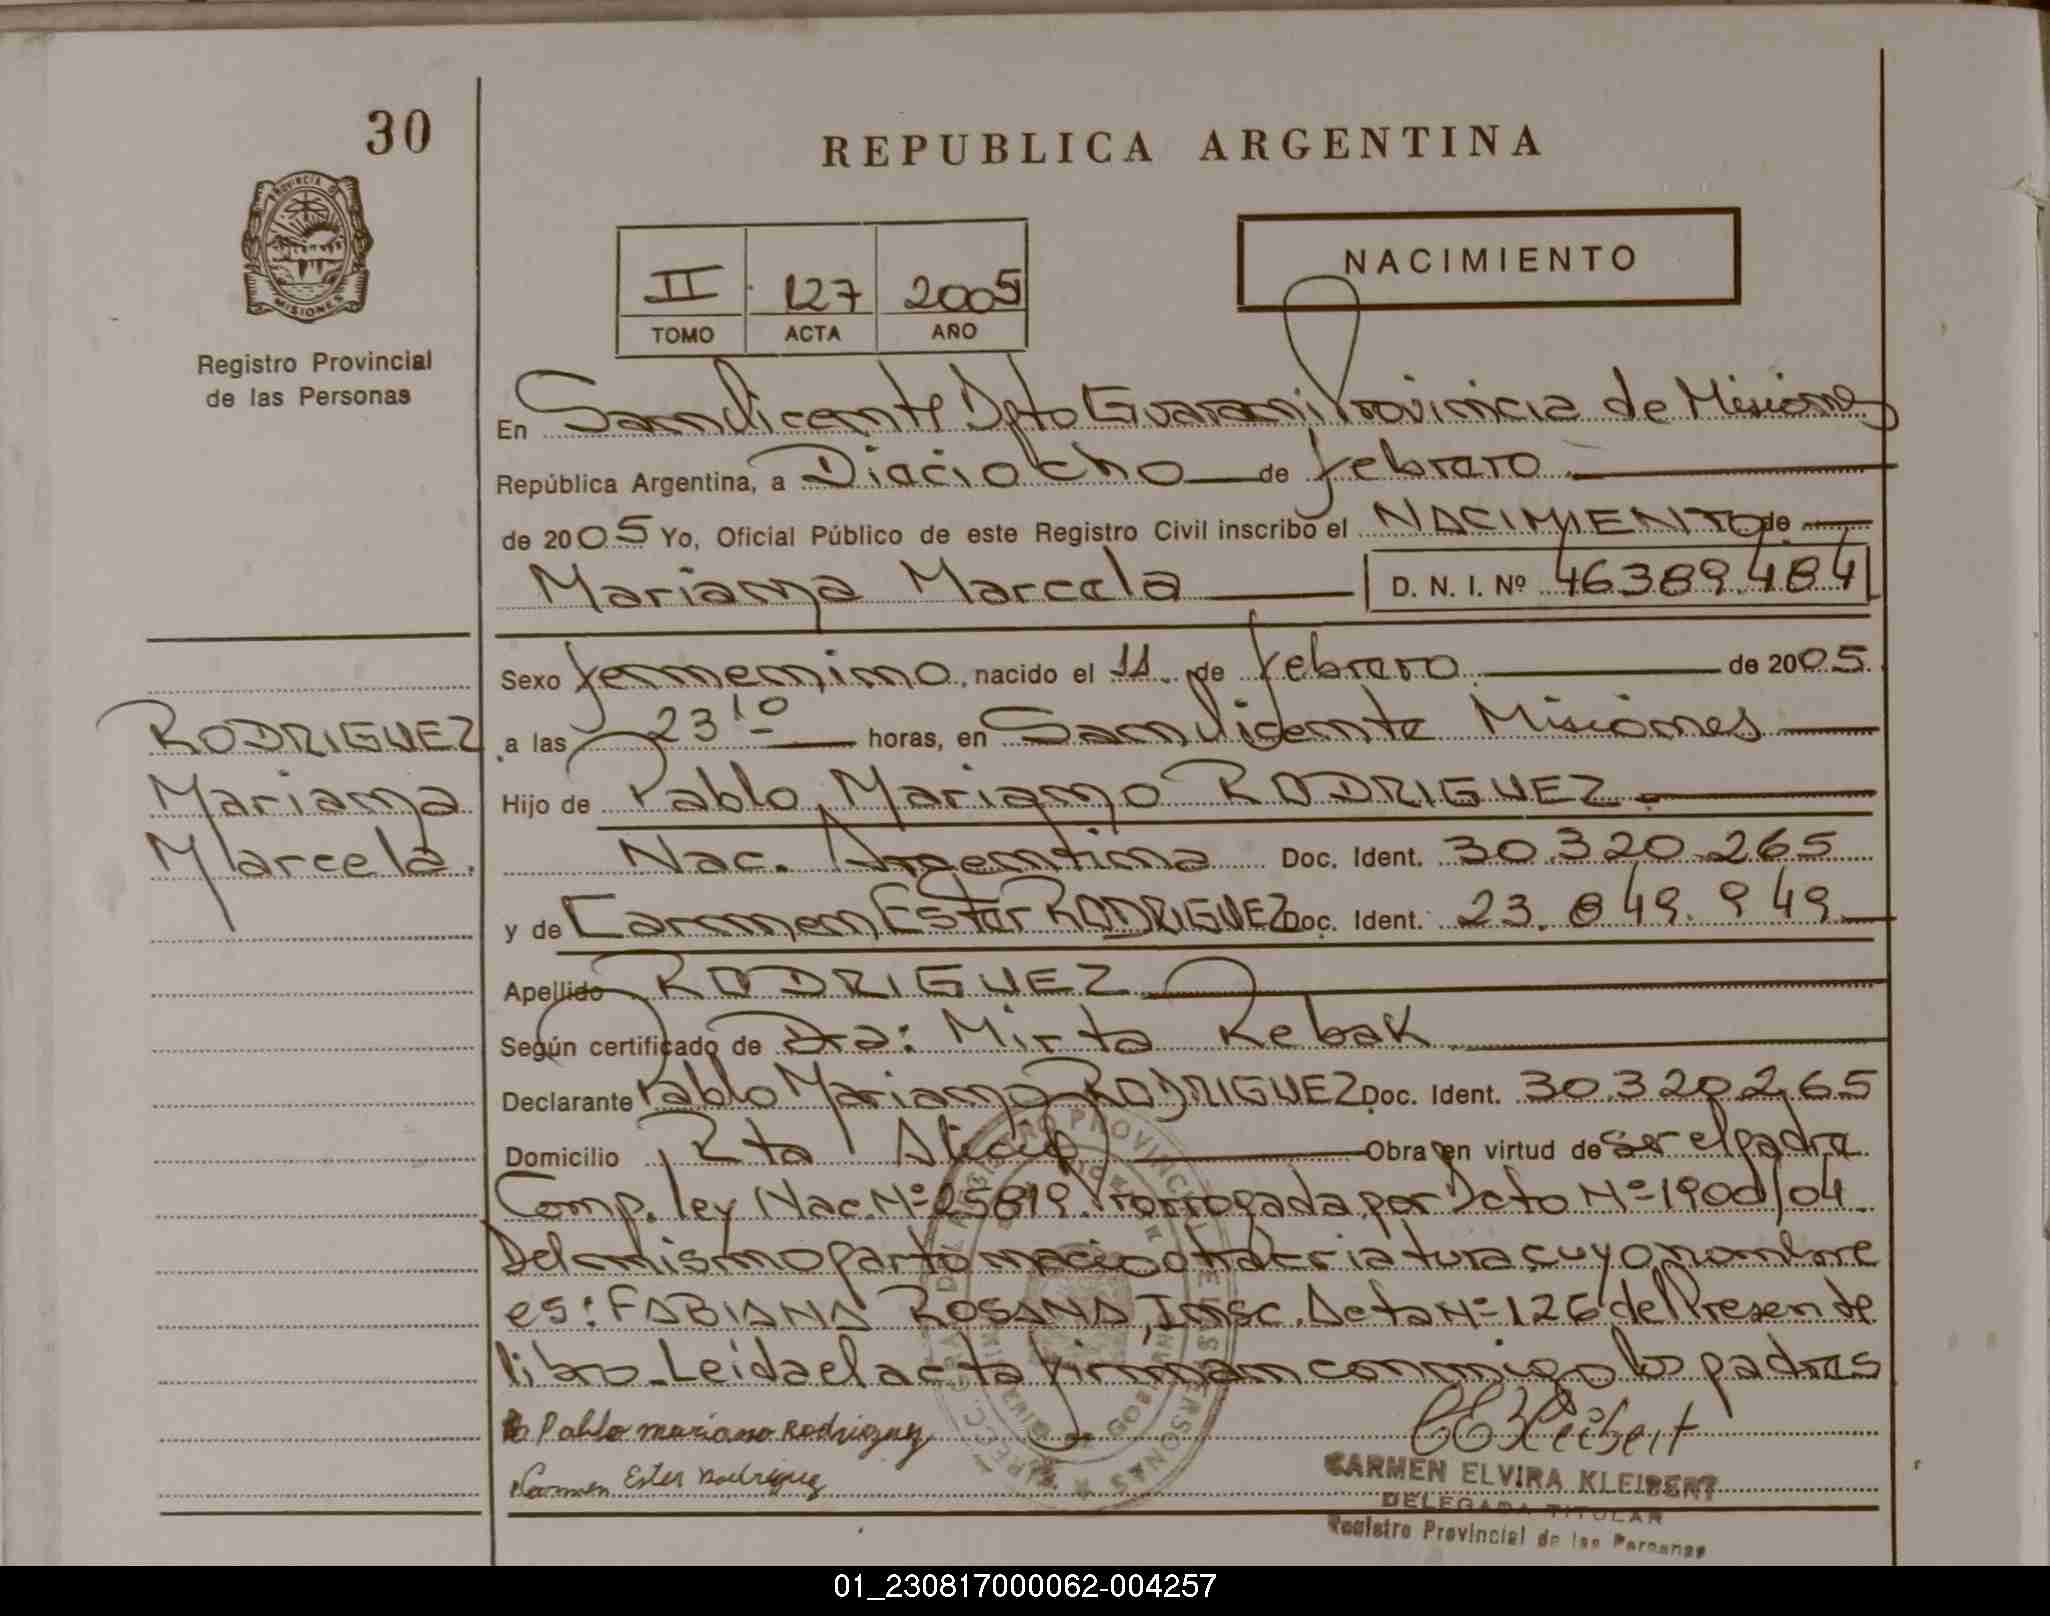 30
REPUBLICA ARGENTINA
PROVINCIA DE
MISIONES
Registro Provincial
de las Personas
II 127 2005
TOMO ACTA AÑO
NACIMIENTO
En San Vicente Dpto Guarani Provincia de Misiones
República Argentina, a Dieciocho de febrero
de 2005 Yo, Oficial Público de este Registro Civil inscribo el NACIMIENTO de
Mariana Marcela D. N. I. Nº 46.389.484
Sexo femenino, nacido el 11 de febrero de 2005.
RODRIGUEZ
Mariana
Marcela.
a las 23 10 horas, en San Vicente Misiones
Hijo de Pablo Mariano RODRIGUEZ
Nac. Argentina Doc. Ident. 30.320.265
y de Carmen Ester RODRIGUEZ Doc. Ident. 23.849.949
Apellido RODRIGUEZ
Según certificado de Dra: Mirta Rebak
Declarante Pablo Mariano RODRIGUEZ Doc. Ident. 30.320.265
Domicilio Pto Alicia Obra en virtud de ser el padre
Comp. ley Nac. Nº 25819. Prorrogada por Dcto Nº 1900/04.
Del mismo parto nacio otra criatura cuyo nombre
es: FABIANA ROSANA, Insc. Acta Nº 126 del Presente
libro. Leida el acta firman conmigo los padres
Pablo mariano Rodriguez
Carmen Ester Rodriguez
CEKleibert
CARMEN ELVIRA KLEIBERT
DELEGADA TITULAR
Registro Provincial de las Personas
01_230817000062-004257